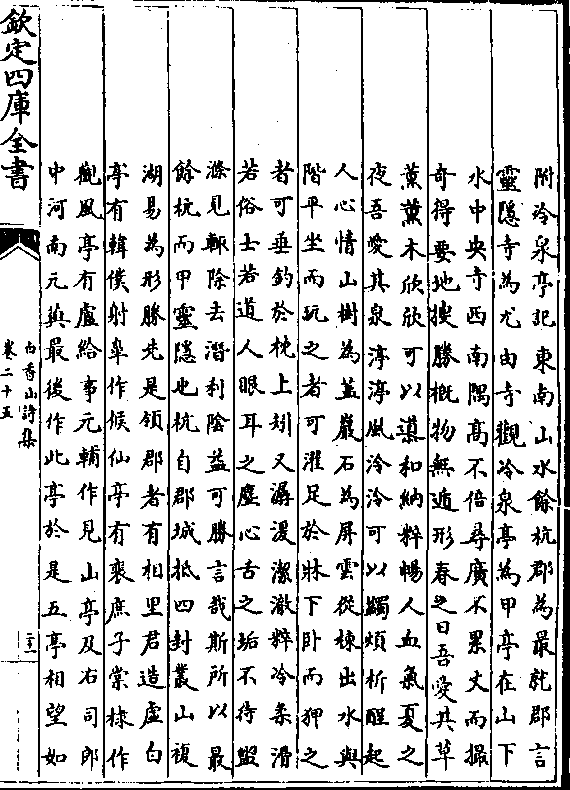 附冷泉亭記東南山水餘杭郡為最就郡言
靈隱寺為尤由寺觀冷泉亭為甲亭在山下
水中央寺西南隅高不倍尋廣不累丈而撮
奇得要地搜勝概物無遁形春之日吾愛其草
薰薰木欣欣可以導和納粹暢人血氣夏之
夜吾愛其泉渟渟風泠泠可以蠲煩析酲起
人心情山樹為蓋巖石為屏雲從棟出水與
階平坐而玩之者可濯足於牀下卧而狎之
者可垂釣於枕上矧又潺湲潔澈粹冷柔滑
若俗士若道人眼耳之塵心舌之垢不待盥
滌見輒除去潛利陰益可勝言哉斯所以最
餘杭而甲靈隱也杭自郡城抵四封叢山複
湖易為形勝先是領郡者有相里君造虛白
亭有韓僕射臯作候仙亭有裴庶子棠棣作
觀風亭有盧給事元輔作見山亭及右司郎
中河南元藇最後作此亭於是五亭相望如
欽定四庫全書
白香山詩集
卷二十五